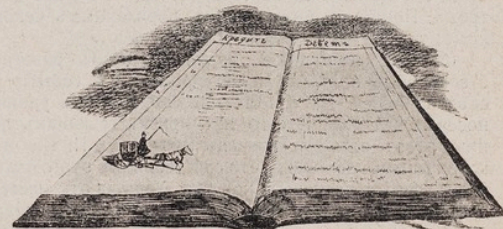 Кредитъ
Дебетъ